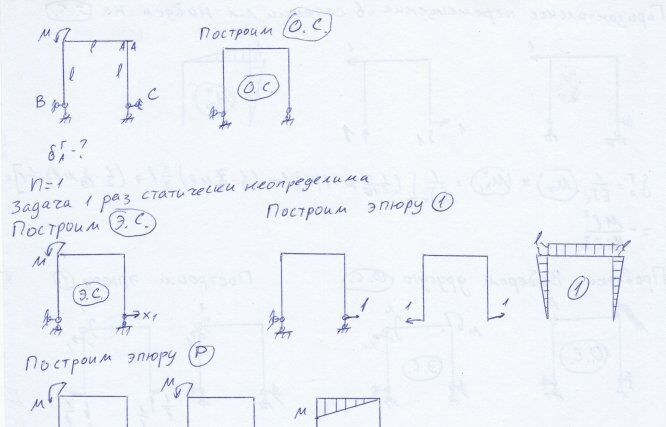 M
Построим О.С.
l A A
l l
О.С
B C
δ^Г_A - ?
n=1
Задача 1 раз статически неопределима
Построим Э.С.
Построим эпюру 1
M
Э.С. x₁
1
1 1
l l
1
Построим эпюру P
M M M